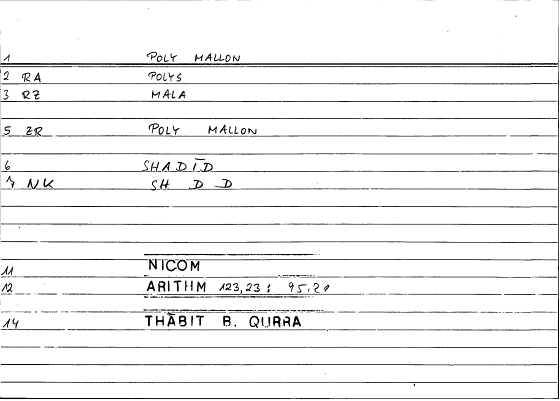 1 POLY MALLON
2 RA POLYS
3 RZ MALA
5 ZR POLY MALLON
6 SHADĪD
7 NK SH D D
11 NICOM
12 ARITHM 123,23 : 95.21
14 THĀBIT B. QURRA